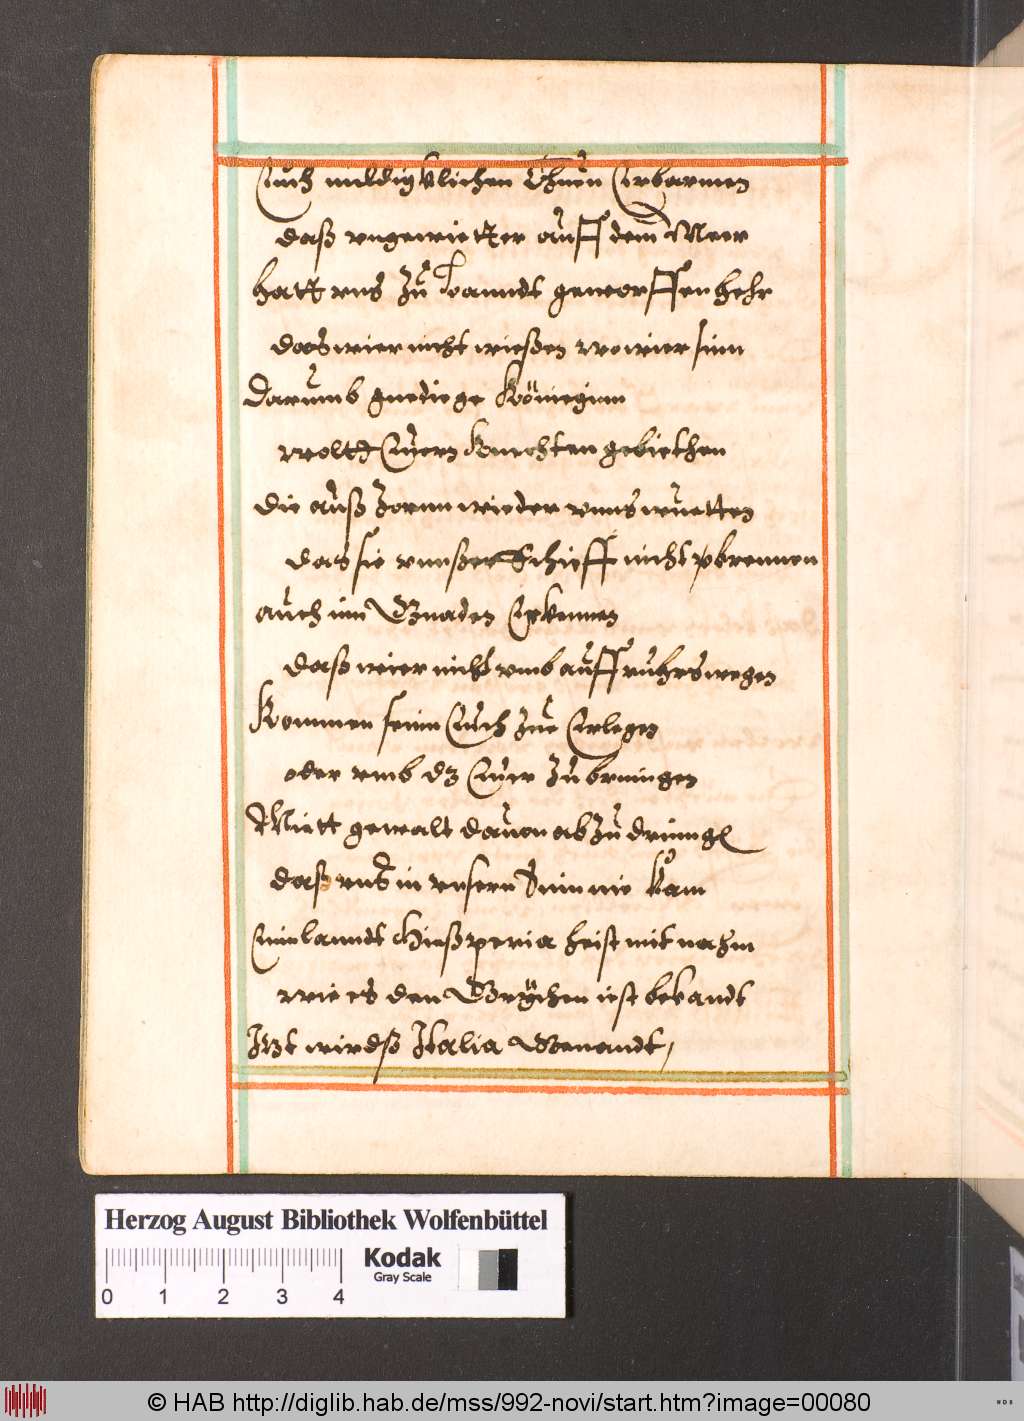 Euch mildigklichen Thuen Erbarmen
daß vngewietter auff dem Meer
hatt vns Zu Lanndt geworffen hehr
das wier nicht wießen wo wier sinn
Darumb gnediege Könieginn
wollt Euern Knechten gebiethen
die auß Zorun wieder vnns wuetten
das sie vnnßer Schieff nicht vbrennen
auch inn Gnaden Erkennen
daß wier nicht vmb auffruhrs wegen
Kommen seinn Euch Zue Erlegen
oder vmb dz Euer Zu brinngen
Mitt gewalt dauon ab Zu drinngen
daß vns in vnsern Sinn nie Kam
Einn lanndt Hießperia heist mit nahm
wie es den Grÿchen iest bekandt
Itzt wirdß Italia Genandt,
Herzog August Bibliothek Wolfenbüttel
Kodak
Gray Scale
0 1 2 3 4
© HAB http://diglib.hab.de/mss/992-novi/start.htm?image=00080